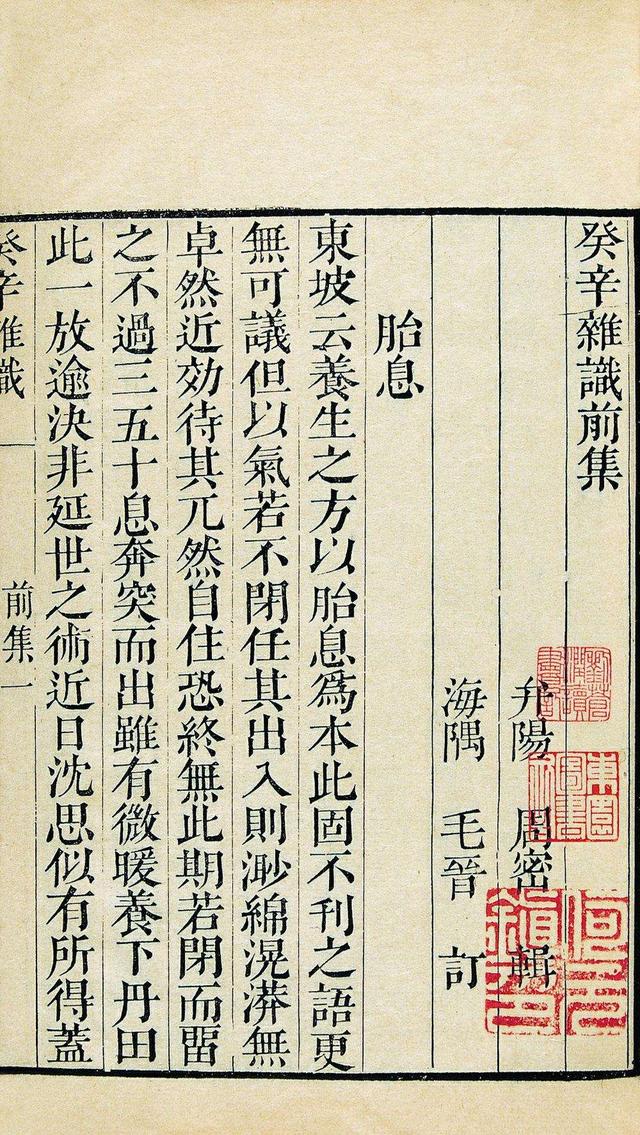 癸辛雜識前集
弁陽 周密 輯
海隅 毛晉 訂
胎息
東坡云養生之方以胎息爲本此固不刊之語更
無可議但以氣若不閉任其出入則渺綿滉漭無
卓然近効待其兀然自住恐終無此期若閉而畱
之不過三五十息奔突而出雖有微暖養下丹田
此一放逾決非延世之術近日沈思似有所得蓋
癸辛雜識
前集一